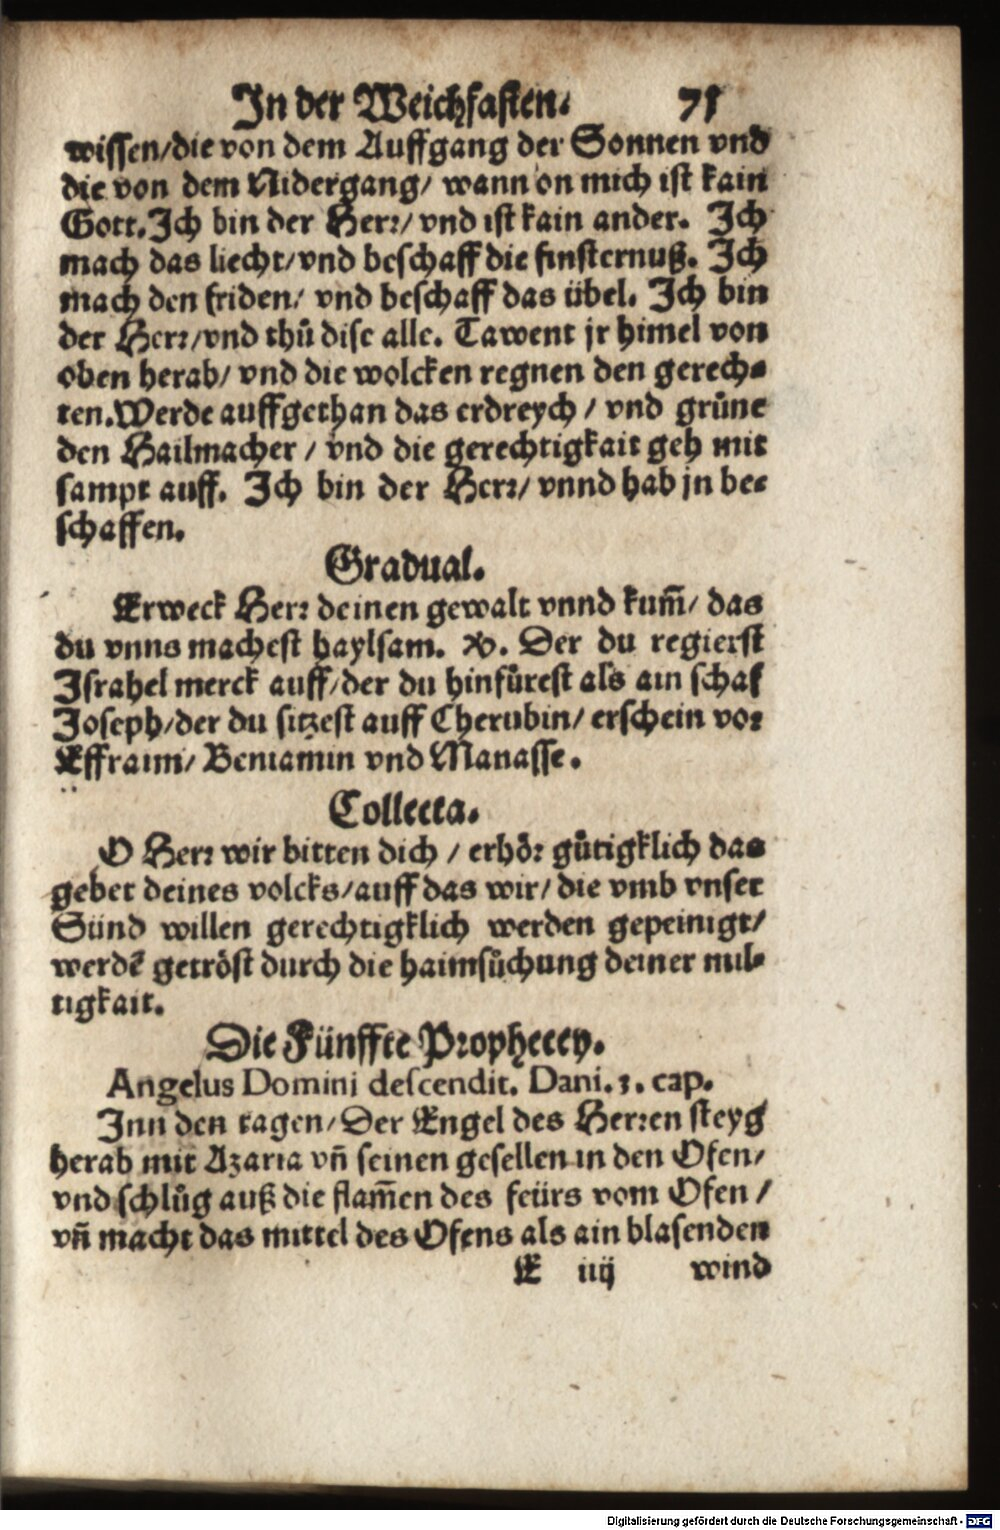 In der Weichfasten. 71
wissen/die von dem Auffgang der Sonnen vnd
die von dem Nidergang/ wann on mich ist kain
Gott. Ich bin der Herr/ vnd ist kain ander. Ich
mach das liecht/vnd beschaff die finsternuß. Ich
mach den friden/ vnd beschaff das übel. Ich bin
der Herr/vnd thů dise alle. Tawent jr himel von
oben herab/ vnd die wolcken regnen den gerech-
ten. Werde auffgethan das erdreych / vnd grůne
den Hailmacher / vnd die gerechtigkait geh mit
sampt auff. Ich bin der Herr/ vnnd hab jn be-
schaffen.
Gradual.
Erweck Herr deinen gewalt vnnd kum̃/ das
du vnns machest haylsam. ℣. Der du regierst
Israhel merck auff/der du hinfůrest als ain schaf
Joseph/der du sitzest auff Cherubin/ erschein vor
Effraim/ Beniamin vnd Manasse.
Collecta.
O Herr wir bitten dich / erhör gůtigklich das
gebet deines volcks/auff das wir/ die vmb vnser
Sünd willen gerechtigklich werden gepeinigt/
werdẽ getröst durch die haimsůchung deiner mil-
tigkait.
Die Fünffte Prophecey.
Angelus Domini descendit. Dani. 3. cap.
Inn den tagen/Der Engel des Herren steyg
herab mit Azaria vñ seinen gesellen in den Ofen/
vnd schlůg auß die flam̃en des feürs vom Ofen /
vñ macht das mittel des Ofens als ain blasenden
K iiij wind
Digitalisierung gefördert durch die Deutsche Forschungsgemeinschaft - DFG